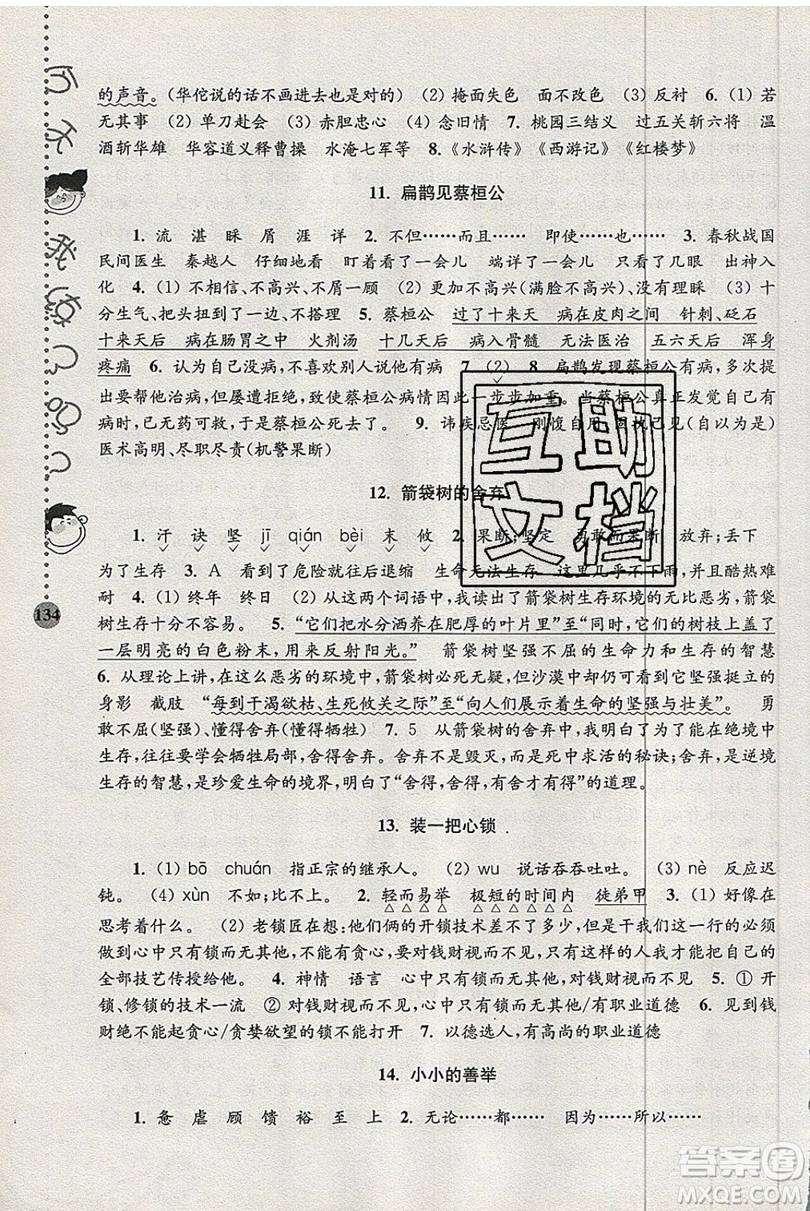 的声音。(华佗说的话不画进去也是对的) (2) 掩面失色 面不改色 (3) 反衬 6. (1) 若
无其事 (2) 单刀赴会 (3) 赤胆忠心 (4) 念旧情 7. 桃园三结义 过五关斩六将 温
酒斩华雄 华容道义释曹操 水淹七军等 8.《水浒传》《西游记》《红楼梦》
11. 扁鹊见蔡桓公
1. 流 湛 睬 屑 涯 详 2. 不但……而且…… 即使……也…… 3. 春秋战国
民间医生 秦越人 仔细地看 盯着看了一会儿 端详了一会儿 只看了几眼 出神入
化 4. (1) 不相信、不高兴、不屑一顾 (2) 不高兴(满脸不高兴)、没有理睬 (3) 十
分生气、把头扭到了一边、不搭理 5. 蔡桓公 过了十来天 病在皮肉之间 针刺、砭石
十来天后 病在肠胃之中 火剂汤 十几天后 病入骨髓 无法医治 五六天后 浑身
疼痛 6. 认为自己没病,不喜欢别人说他有病 7. (2) 8. 扁鹊发现蔡桓公有病,
提出要帮他治病,但屡遭拒绝,致使蔡桓公病情一步步加重。当蔡桓公真正发觉自己有
病时,已无药可救,于是蔡桓公死去了。 9. 讳疾忌医 刚愎自用 固执己见(自以为是)
医术高明、尽职尽责(机警果断)
12. 箭袋树的舍弃
1. 汗 诀 坚 jī qián bèi 末 攸 2. 果断;坚定 勇敢而果断 放弃;丢下
为了生存 3. A 看到了危险就往后退缩 生命无法生存 这里几乎无雨,酷热难
耐 4. (1) 终年 终日 (2) 从这两个词语中,我读出了箭袋树生存环境的无比恶劣,箭袋
树生存十分不容易。 5. “它们把水分洒养在肥厚的叶片里”至“同时,它们的树枝上盖了
一层明亮的白色粉末,用来反射阳光。” 箭袋树坚强不屈的生命力
6. 从理论上讲,在这么恶劣的环境中,箭袋树必死无疑,但沙漠中仍可见它坚强挺立的
身影 截肢 “每到干渴欲枯、生死攸关之际”至“向人们展示着生命的坚强与壮美”。 勇
敢不屈(坚强)、懂得舍弃(懂得牺牲) 7. 5 从箭袋树的舍弃中,我明白了为了能在绝境中
生存,往往要学会牺牲局部,学会舍弃。舍弃不是毁灭,而是死中求活的秘诀;舍弃,是逆境
生存的智慧,是珍爱生命的境界,明白了“舍得,舍得,有舍才有得”的道理。
13. 装一把心锁
1. (1) bō chuán 指正宗的继承人。 (2) wu 说话吞吞吐吐。 (3) nè 反应迟
钝。 (4) xùn 不如;比不上。 2. 轻而易举 极短的时间内 徒弟甲 3. (1) 好像在
思考着什么。 (2) 老锁匠在想:他们俩的开锁技术差不了多少,但是干我们这一行的必须
做到心中只有锁而无其他,对钱财视而不见。只有这样的人才能有所发展,我才能把自己的
全部技艺传给他。 4. 神情 语言 心中只有锁,不能有贪心,要对钱财视而不见 5. ① 开
锁、修锁的技术一流 ② 对钱财视而不见,心中只有锁而无其他/有职业道德 6. 见到钱
财绝不能起贪心/贪婪欲望的锁不能打开 7. 以德选人,有高尚的职业道德
14. 小小的善举
1. 惫 虐 顾 馈 裕 至 上 2. 无论……都…… 因为……所以……
134
互助
文档
答案圈
MXQE.COM